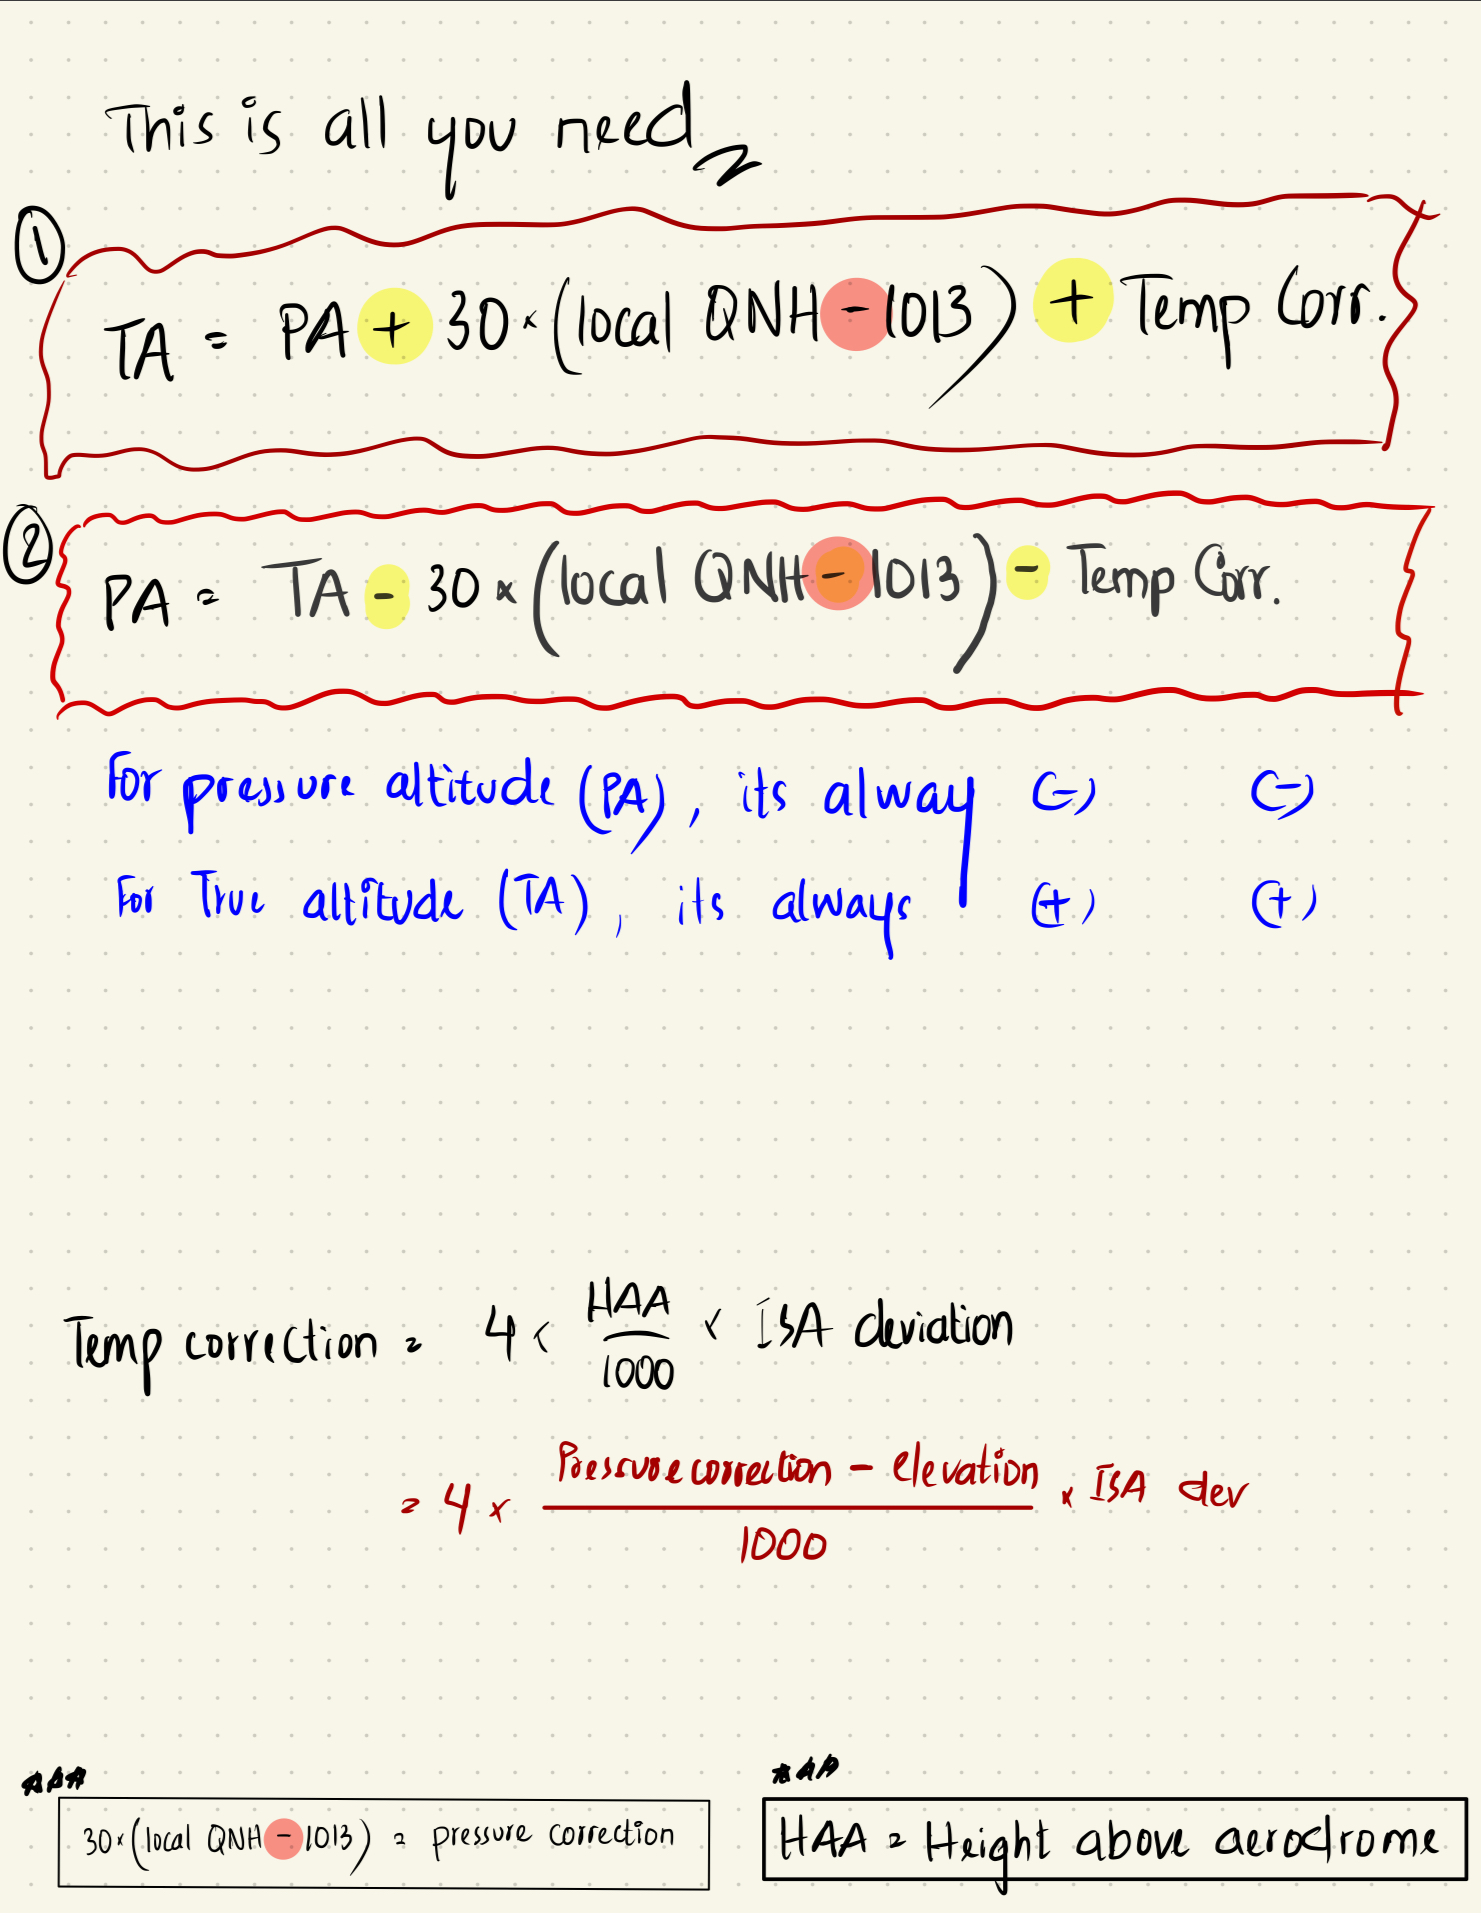 This is all you need
①
TA = PA + 30 × (local QNH - 1013) + Temp Corr.
②
PA = TA - 30 × (local QNH - 1013) - Temp Corr.
For pressure altitude (PA), its alway (-) (-)
For True altitude (TA), its always (+) (+)
Temp correction = 4 × HAA/1000 × ISA deviation
= 4 × Pressure correction - elevation/1000 × ISA dev
30 × (local QNH - 1013) = pressure correction
HAA = Height above aerodrome